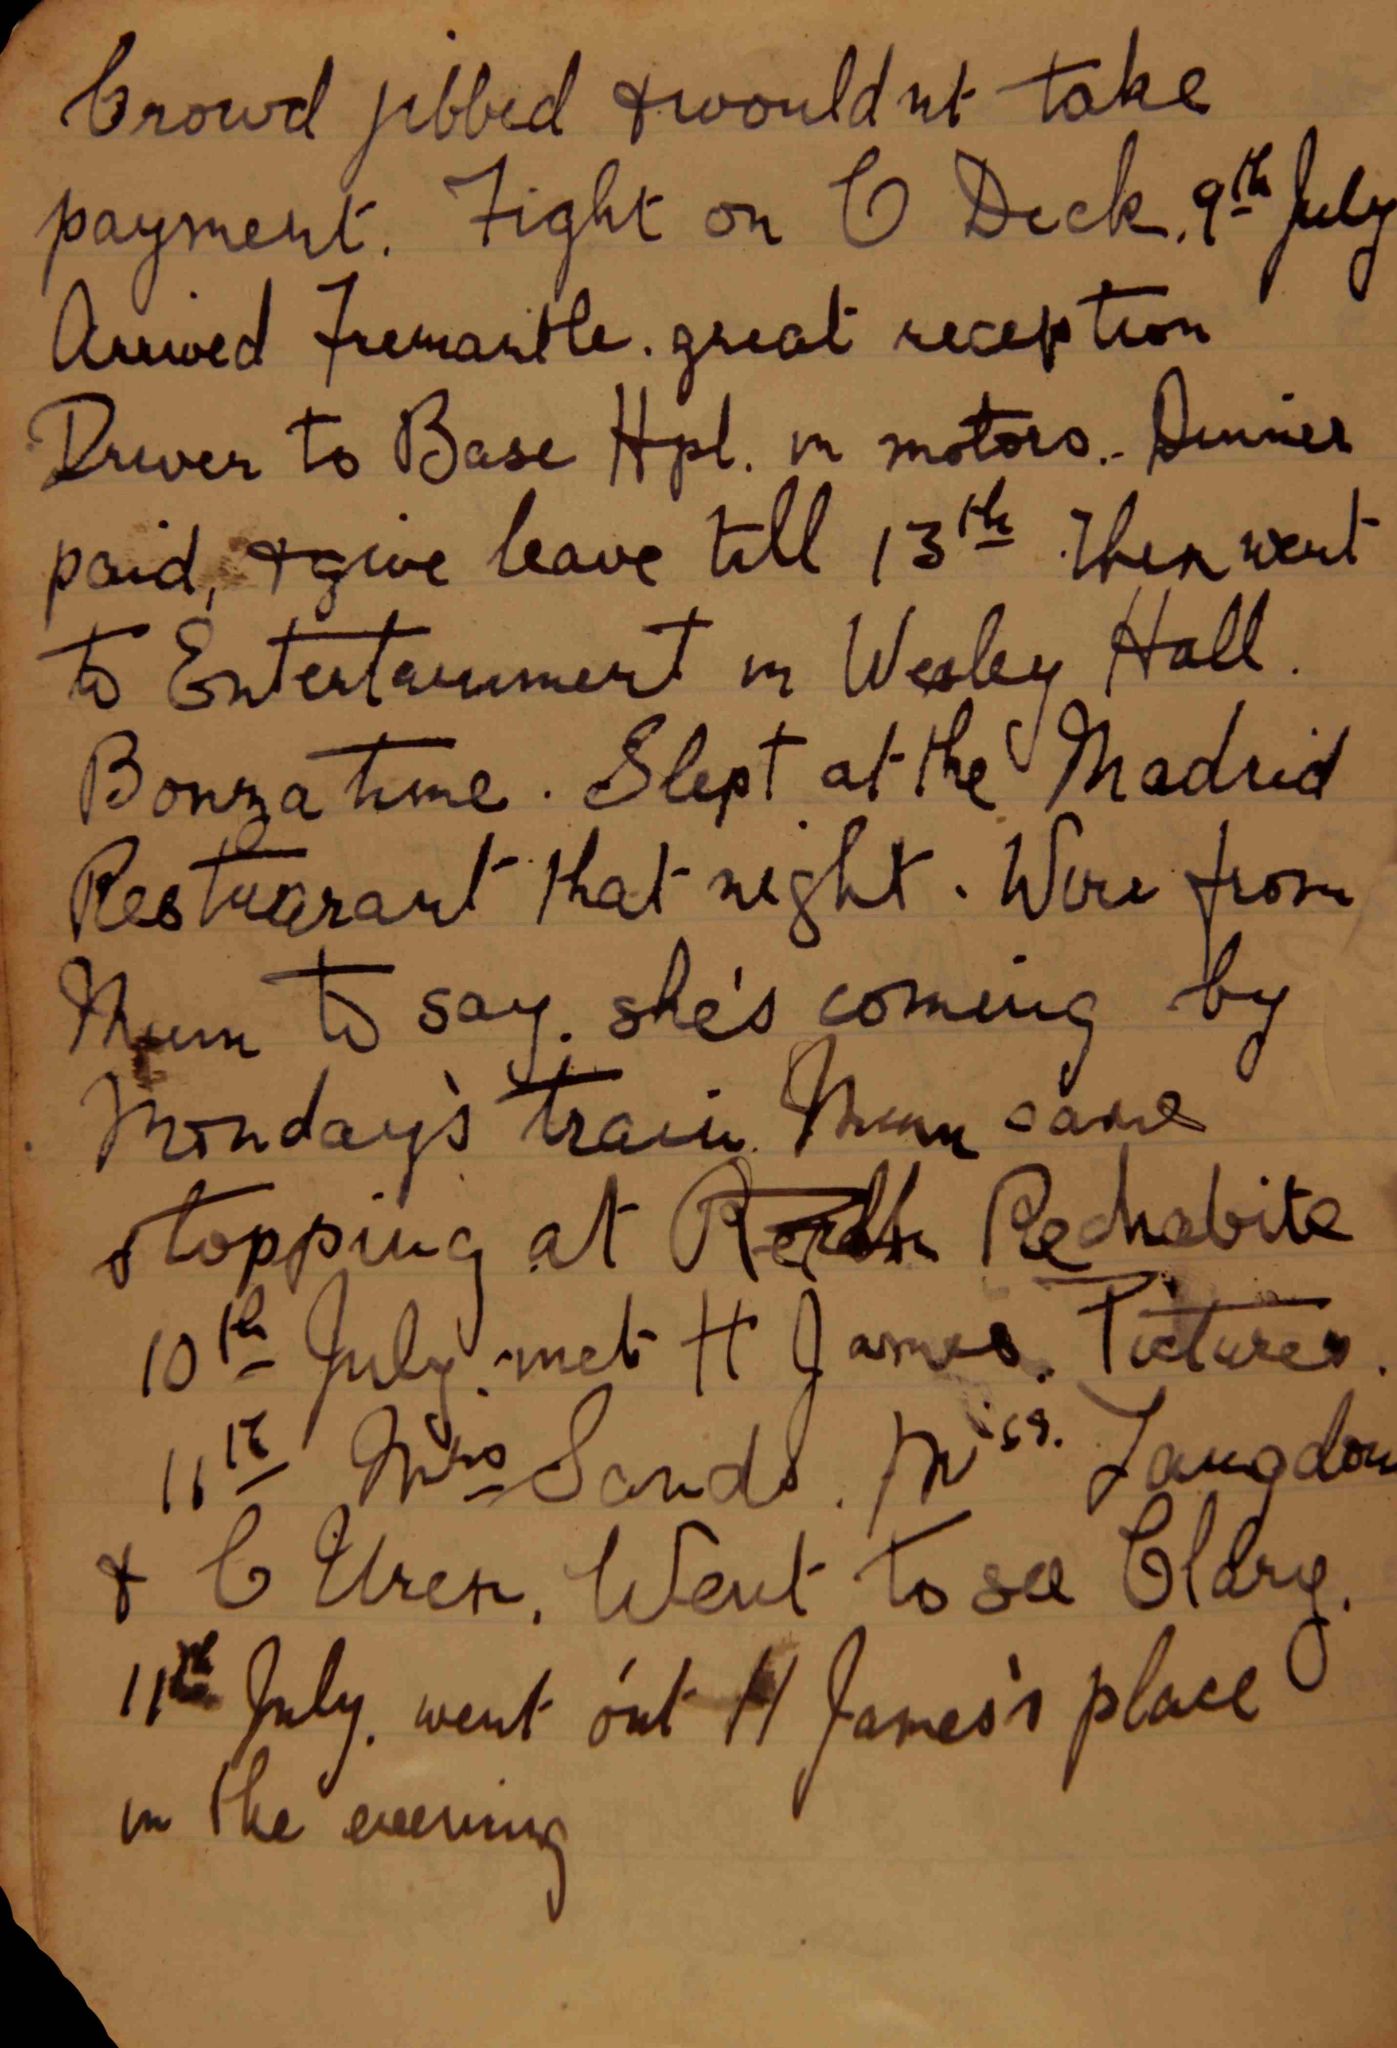 Crowd jibbed & wouldnt take
payment. Fight on C Deck. 9th July
Arrived Fremantle. great reception
Driven to Base Hpl. in motors.. Dinner
paid, & give leave till 13th Then went
to Entertainment in Wesley Hall.
Bonza time. Slept at the Madrid
Restuarant that night. Wire from
Mum to say. she's coming by
Monday's train. Mum came
stopping at Rechabite
10th July. met H James. Pictures.
11th Mrs Sands. Miss. Langdon
& C Uren. Went to see Clary.
11th July. went out H James's place
in the evening